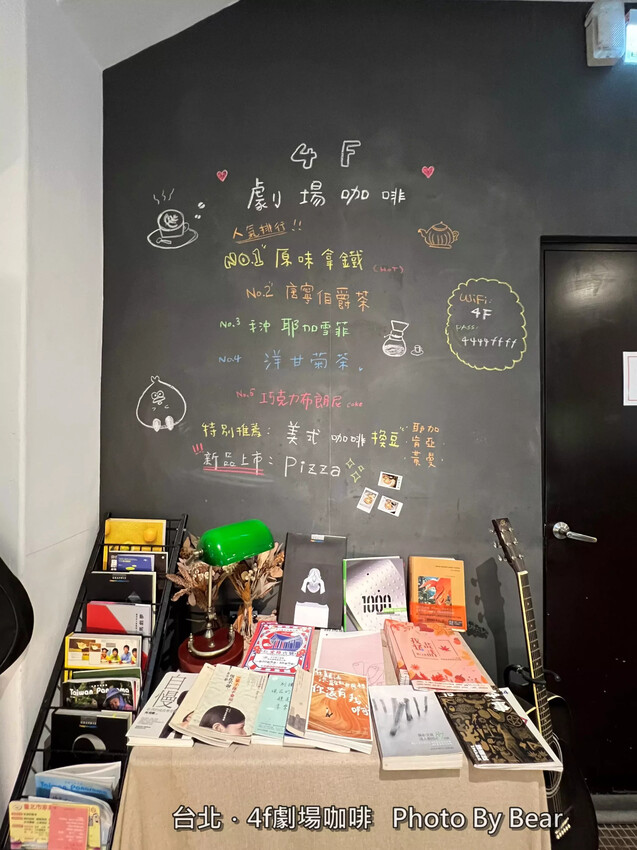 4 F
劇場咖啡
人氣排行!!
NO.1 原味拿鐵 (HOT)
No.2 唐寧伯爵茶
No.3 手沖 耶加雪菲
No.4 洋甘菊茶
No.5 巧克力布朗尼 cake
特別推薦: 美式咖啡換豆 耶加 肯亞 黃曼
!!!新品上市: Pizza
WiFi:
4F
pass:
4444ffff
1000
Taiwan Panorama
台北‧4f劇場咖啡 Photo By Bear